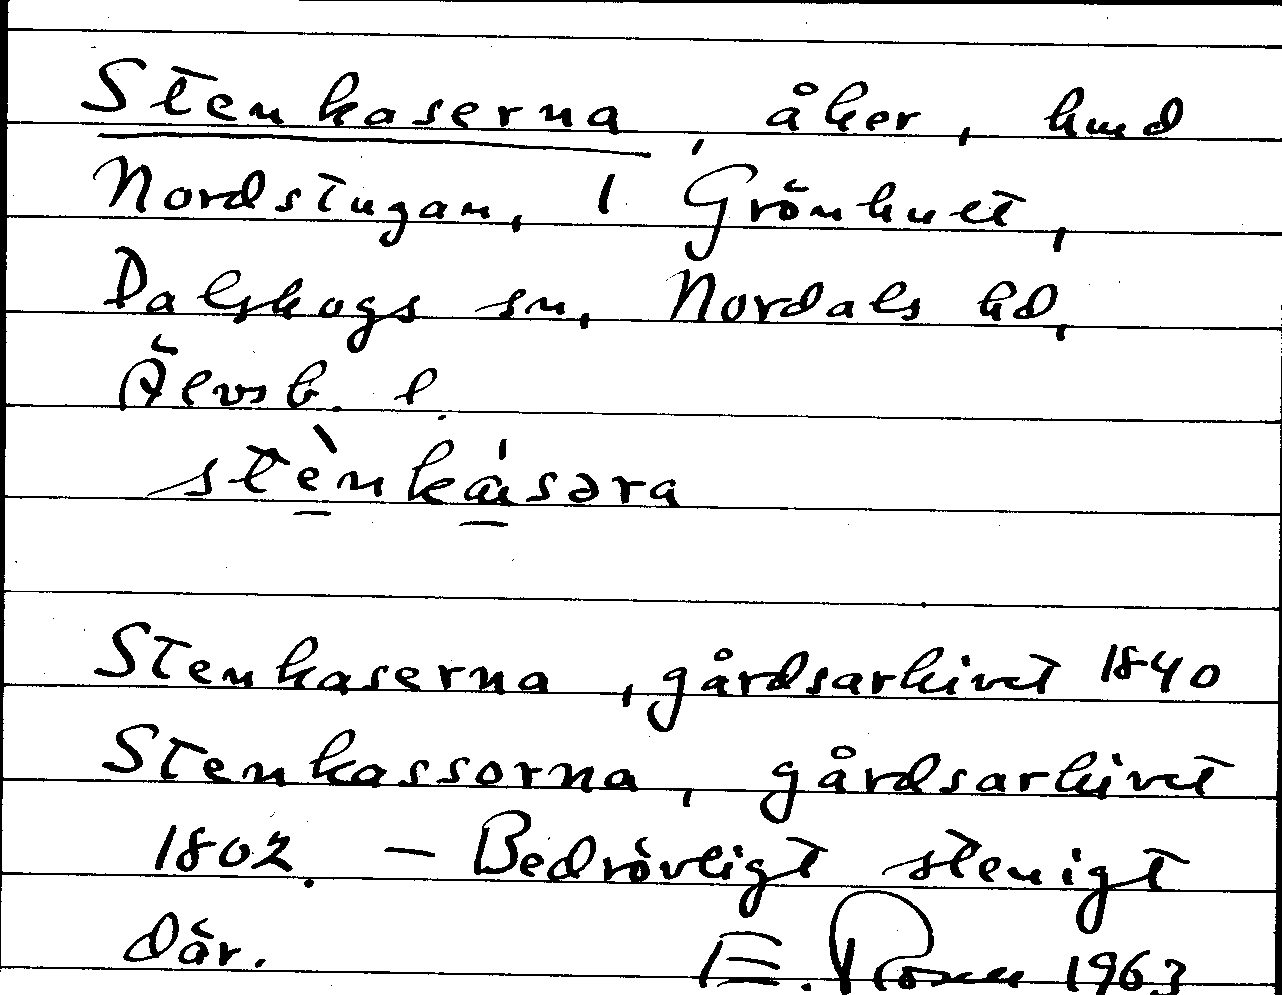 Stenkaserna, åker, hmd
Nordstugan, 1 Grönhult,
Dalskogs sn, Nordals hd,
Älvsb. l.
stènkásəra
Stenkaserna, gårdsarkivet 1840
Stenkassorna, gårdsarkivet
1802. – Bedrövligt stenigt
där. E. Rosén 1963